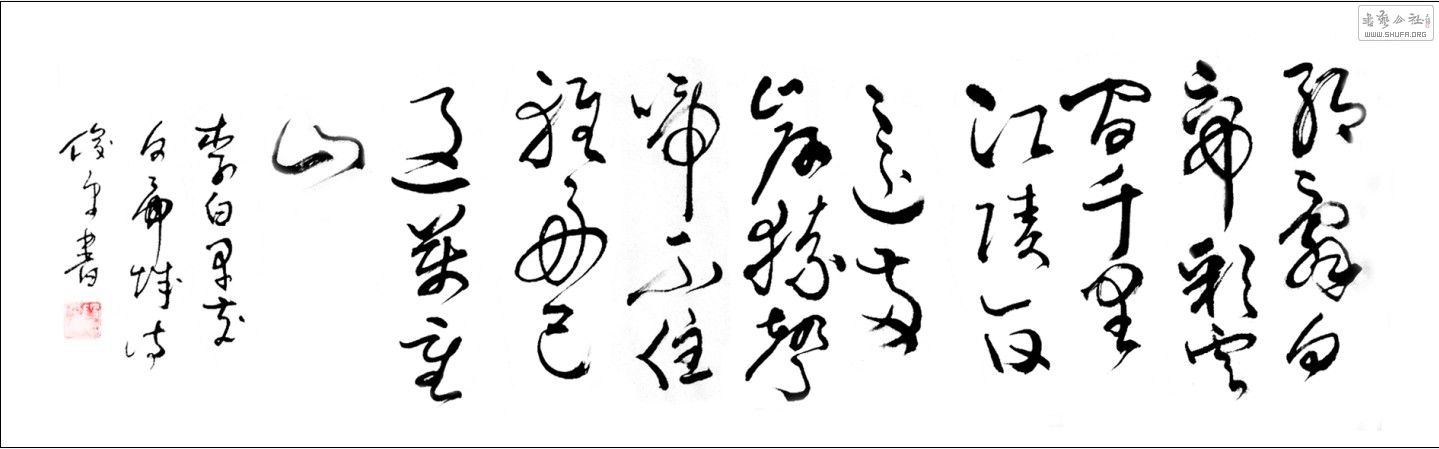 朝辭白
帝彩雲
間千里
江陵一日
還兩
岸猿聲
啼不住
輕舟已
過萬重
山
李白早发
白帝城诗
俊泉書
書藝公社
WWW.SHUFA.ORG